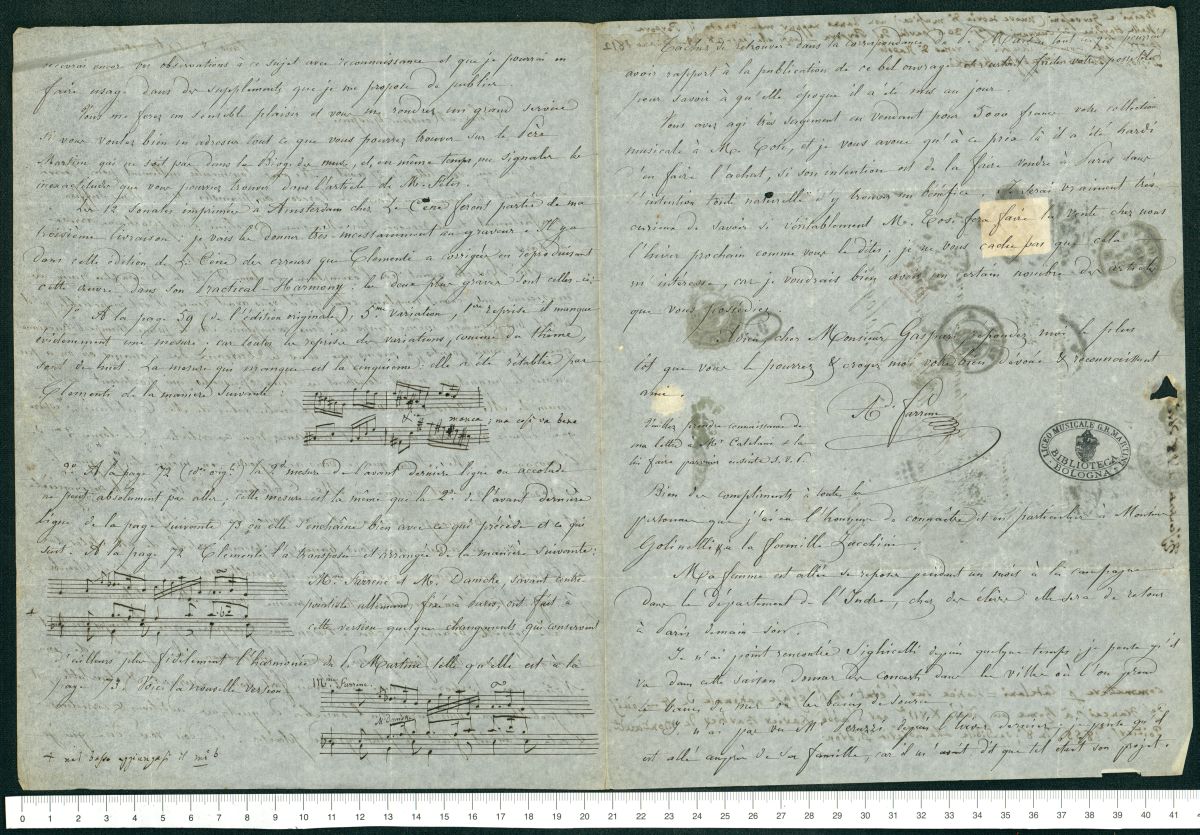 recevrai encor vos observations à ce sujet avec reconnaissance et que je pourrai en
faire usage dans des suppléments que je me propose de publier.
Vous me ferez un sensible plaisir et vous me rendrez un grand service
si vous voulez bien m'adresser tout ce que vous pourrez trouver sur le Père
Martini qui ne soit pas dans la Biog. des mus. et, en même temps, me signaler les
inexactitudes que vous pourrez trouver dans l'article de M. Fétis.
Les 12 Sonates imprimées à Amsterdam chez Le Cène feront partie de ma
troisième livraison : je vais les donner très incessamment au graveur : Il y a
dans cette édition de Le Cène des erreurs que Clementi a corrigées en reproduisant
cette œuvre dans son Practical-Harmony : les deux plus graves sont celles-ci :
1° A la page 59 (de l'édition originale), 5me Variation, 1ère reprise il manque
évidemment une mesure ; car toutes les reprises des variations, comme du thème,
sont de huit. La mesure qui manque est la cinquième : elle a été rétablie par
Clementi de la manière suivante :
manca ; ma così va bene
2° A la page 72 (édon origle) la 2de mesure de l'avant dernière ligne ou accolade
ne peut absolument pas aller ; cette mesure est la même que la 2de de l'avant dernière
ligne de la page suivante 73 où elle s'enchaîne bien avec ce qui précède et ce qui
suit. A la page 72 Clementi l'a transposée et arrangée de la manière suivante :
M. Farrenc et M. Damcke, savant contre-
pointiste allemand, fixé à Paris, ont fait à
cette version quelques changements qui conservent
d'ailleurs plus fidèlement l'harmonie de Martini telle qu'elle est à la
page 73. Voici la nouvelle version :
Mme Farrenc.
M. Damcke
+ nel basso aggiungasi il mi b
Tâchez de retrouver dans la correspondance tout ce qui pourrait
avoir rapport à la publication de ce bel ouvrage faites votre possible
pour savoir à qu'elle époque il a été mis au jour.
Vous avez agi très sagement en vendant pour 5000 francs votre collection
musicale à M. Tosi, et je vous avoue qu'à ce prix là il a été hardi
d'en faire l'achat, si son intention est de la faire vendre à Paris dans
l'intention toute naturelle d'y trouver un bénéfice. Je serais vraiment très
curieux de savoir si véritablement M. Tosi fera faire la vente chez nous
l'hiver prochain comme vous le dites ; je ne vous cache pas que cela
m'intéresse, car je voudrais bien avoir un certain nombre des articles
que vous possédiez.
Adieu, cher Monsieur Gaspari, répondez moi le plus
tôt que vous le pourrez & croyez moi votre bien dévoué & reconnaissant
ami.
A. Farrenc
Veuillez prendre connaissance de
ma lettre à Mr Catelani & la
lui faire parvenir ensuite S.V.P.
Bien des compliments à toutes les
personnes que j'ai eu l'honneur de connaître et en particulier à Monsieur
Golinelli & la famille Zucchini.
Ma femme est allée se reposer pendant un mois à la campagne
dans le département de l'Indre, chez des élèves elle sera de retour
à Paris demain soir.
Je n'ai point rencontré Sighicelli depuis quelque temps ; je pense qu'il
va dans cette saison donner des concerts dans les villes où l'on prend
les bains de mer ou les bains de source.
Je n'ai pas vu M. Peruzzi depuis l'hiver dernier : je pense qu'il
est allé auprès de sa famille, car il m'avait dit que tel était son projet.
LICEO MUSICALE G.B. MARTINI
BIBLIOTECA
BOLOGNA
0 1 2 3 4 5 6 7 8 9 10 11 12 13 14 15 16 17 18 19 20 21 22 23 24 25 26 27 28 29 30 31 32 33 34 35 36 37 38 39 40 41